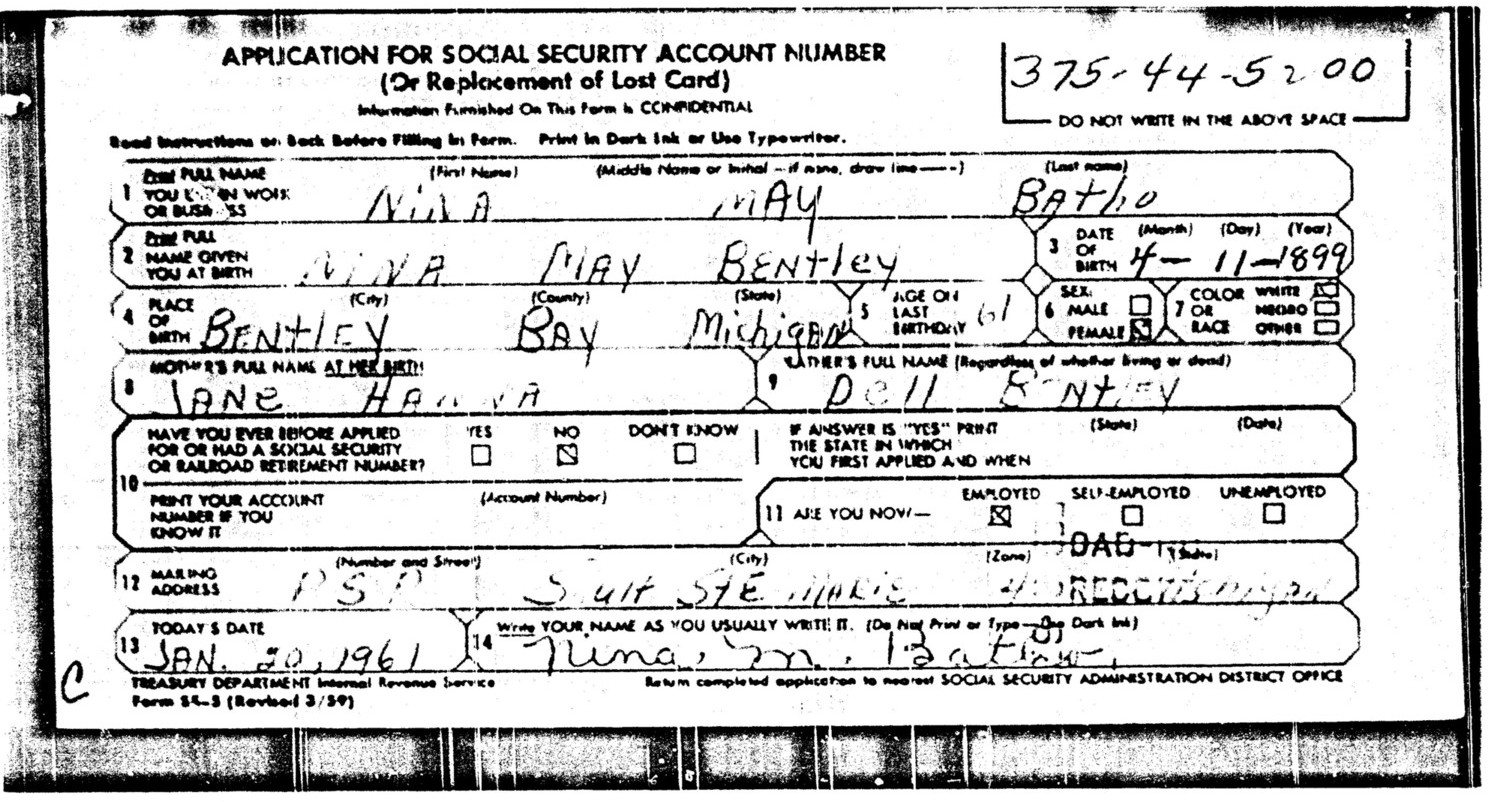 APPLICATION FOR SOCIAL SECURITY ACCOUNT NUMBER
(Or Replacement of Lost Card)
Information Furnished On This Form Is CONFIDENTIAL
375-44-5200
DO NOT WRITE IN THE ABOVE SPACE
Read Instructions on Back Before Filling In Form. Print in Dark Ink or Use Typewriter.
1 Print FULL NAME YOU IN WORK OR BUSINESS (First Name) (Middle Name or Initial – if none, draw line —) (Last name)
NiNA MAY BAtho
2 Print FULL NAME GIVEN YOU AT BIRTH
NiNA MAY BENtley
3 DATE OF BIRTH (Month) (Day) (Year)
4 – 11 – 1899
4 PLACE OF BIRTH (City) (County) (State)
BENtLEY BAY MichigAN
5 AGE ON LAST BIRTHDAY 61
6 SEX: MALE FEMALE
7 COLOR OR RACE WHITE NEGRO OTHER
8 MOTHER'S FULL NAME AT HER BIRTH
JANe
9 FATHER'S FULL NAME (Regardless of whether living or dead)
Dell BENtlEY
10 HAVE YOU EVER BEFORE APPLIED FOR OR HAD A SOCIAL SECURITY OR RAILROAD RETIREMENT NUMBER? YES NO DON'T KNOW
IF ANSWER IS "YES" PRINT THE STATE IN WHICH YOU FIRST APPLIED AND WHEN (State) (Date)
PRINT YOUR ACCOUNT NUMBER IF YOU KNOW IT (Account Number)
11 ARE YOU NOW— EMPLOYED SELF-EMPLOYED UNEMPLOYED
12 MAILING ADDRESS (Number and Street) (City) (Zone) (State)
SAult STE MARIE
13 TODAY'S DATE
JAN. 20, 1961
14 Write YOUR NAME AS YOU USUALLY WRITE IT. (Do Not Print or Type—Use Dark Ink)
Nina. M. Batho.
C
TREASURY DEPARTMENT Internal Revenue Service
Form SS-5 (Revised 3/59)
Return completed application to nearest SOCIAL SECURITY ADMINISTRATION DISTRICT OFFICE